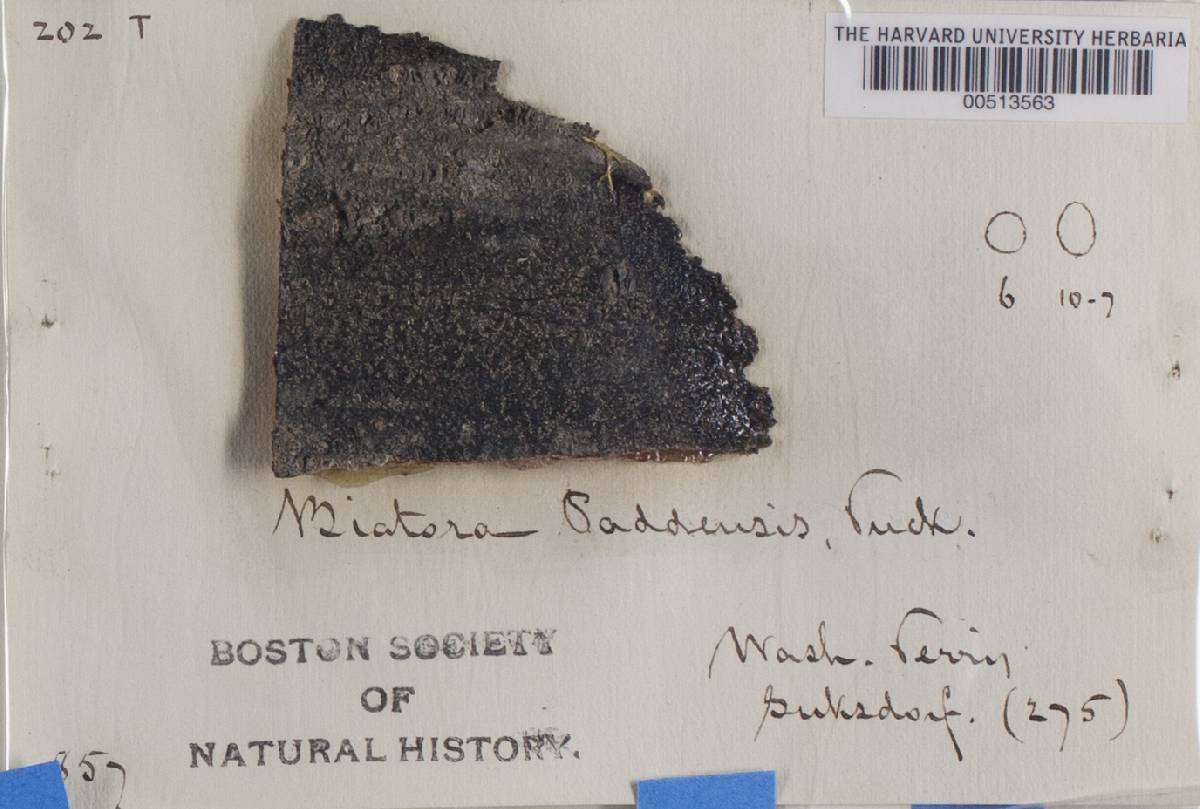 202 T
THE HARVARD UNIVERSITY HERBARIA
00513563
6 10-7
Biatora Paddensis, Tuck.
BOSTON SOCIETY
OF
NATURAL HISTORY.
Wash. Terriy.
Suksdorf. (275)
857